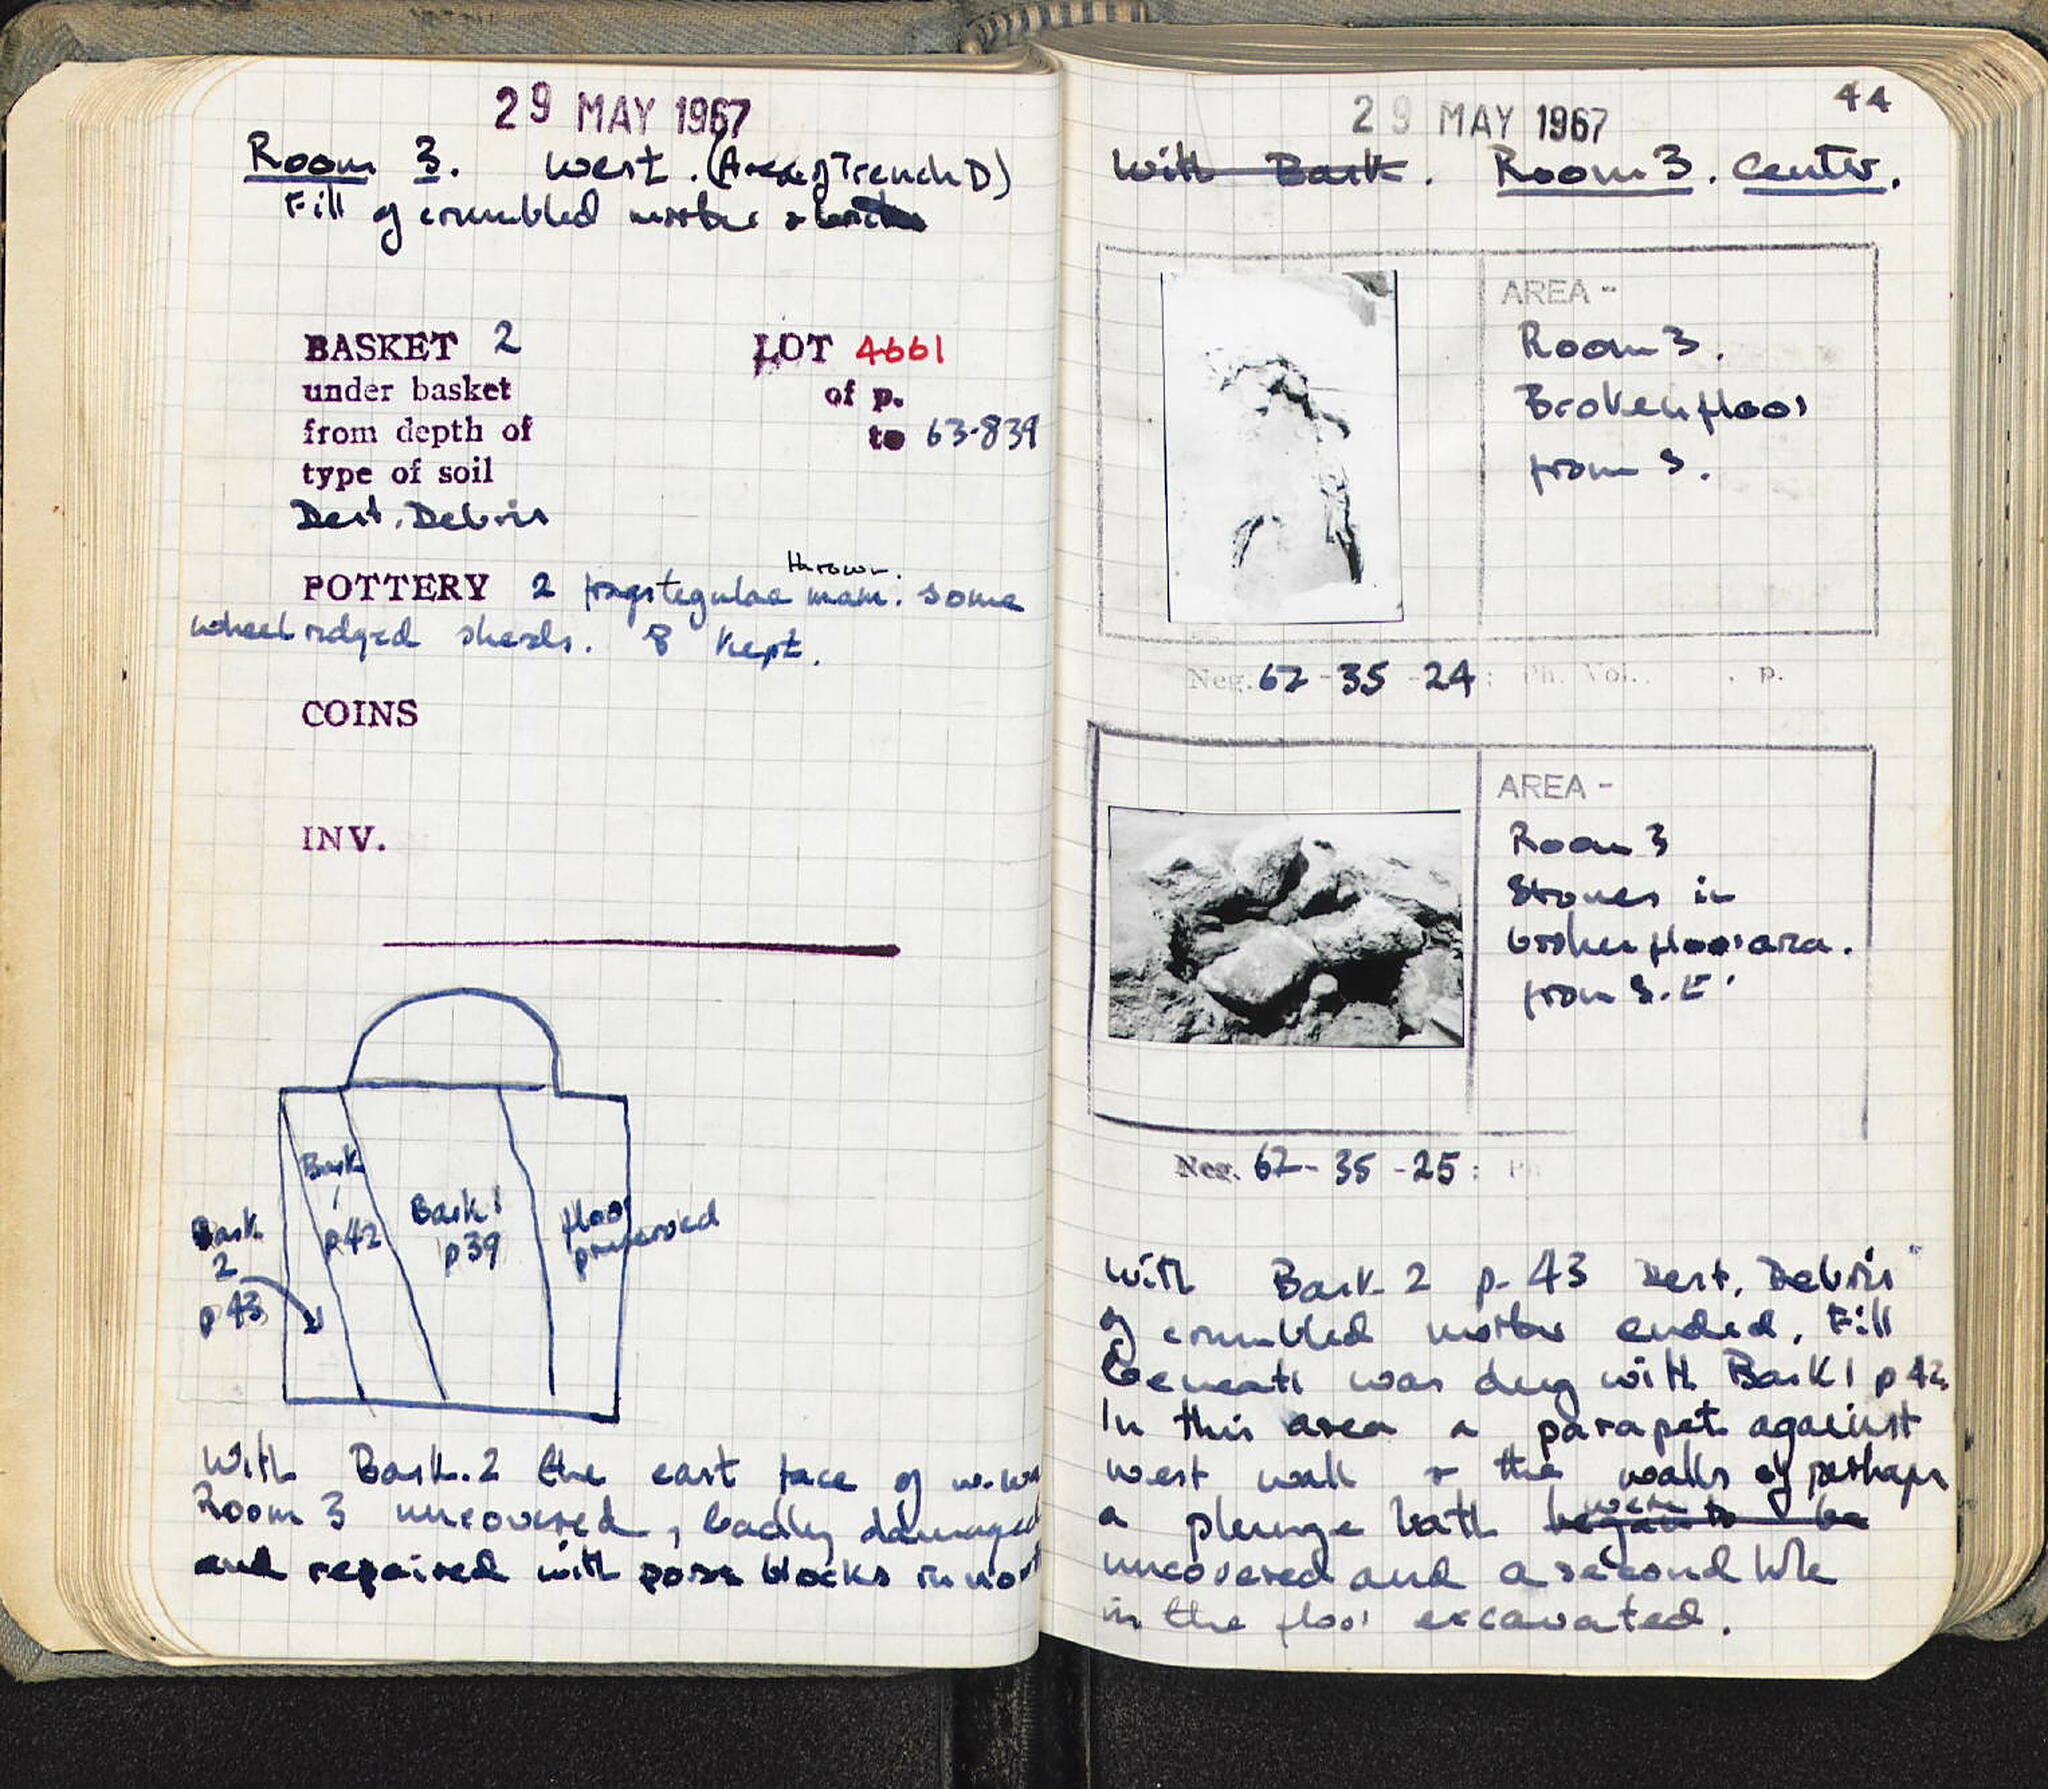 29 MAY 1967
Room 3. West. (Area of Trench D)
Fill of crumbled mortar &
BASKET 2
LOT 4661
under basket
of p.
from depth of
to 63-839
type of soil
Dest. Debris
thrown.
POTTERY 2 frags tegulae mam. some
wheel ridged sherds. 8 kept.
COINS
INV.
Bask
1
p42
Bask 1
p39
floor
preserved
Bask
2
p43
With Bask. 2 the east face of w. wa
Room 3 uncovered, badly damaged
and repaired with poros blocks in nort
29 MAY 1967
44
With Bask. Room 3. Center.
AREA -
Room 3.
Broken floor
from S.
Neg. 67-35-24: Ph. Vol. , p.
AREA -
Room 3
Stones in
broken floor area.
from S.E.
Neg. 67-35-25: Ph
With Bask. 2 p. 43 Dest. Debris
of crumbled mortar ended. Fill
beneath was dug with Bask 1 p 42.
In this area a parapet against
west wall & the walls of perhaps
were
a plunge bath began to be
uncovered and a second hole
in the floor excavated.